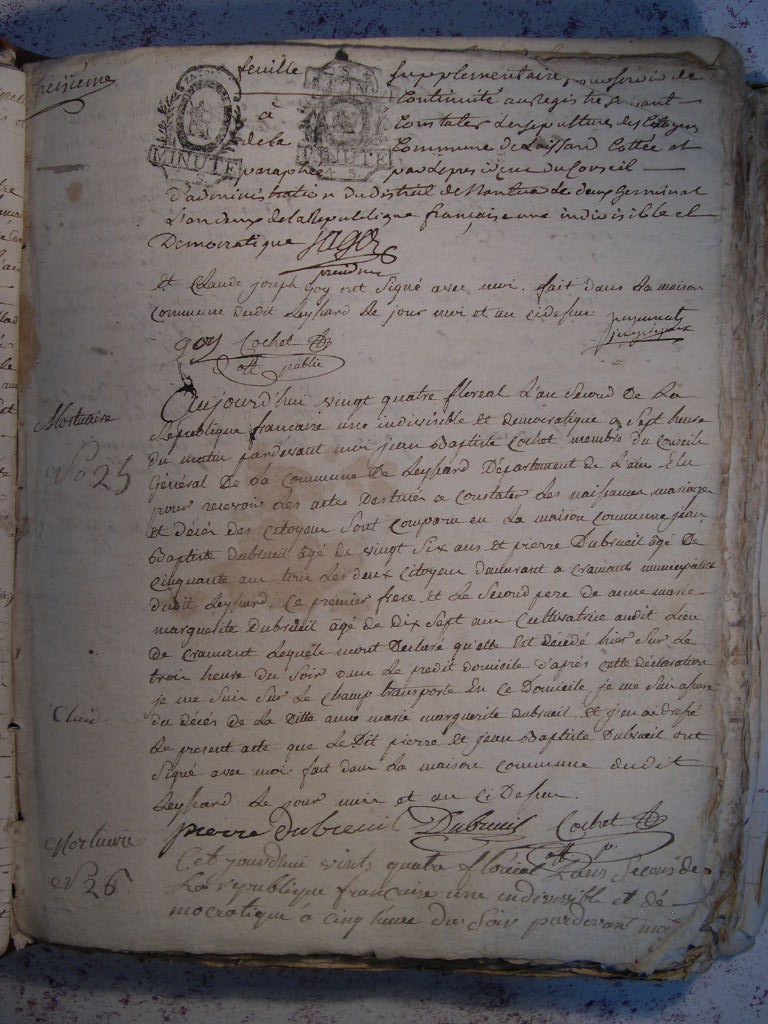 treizième
feuille supplementaire pour servir de
Continuité au registre servant
à Constater les sepultures des Citoyens
de la Commune de Leissard Cottée et
MINUTE MINUTE
paraphée par le president du Conseil
d'administration du district de Nantua le deux Germinal
L'an deux de la Republique française une indivisible et
Democratique
president
et Claude joseph Goy ont signé avec moi. fait dans la maison
Commune dudit Leyssard le jour mois et an cidessus
goy Cochet
off public
Mortuaire
N° 25
Aujourd'hui vingt quatre floreal L'an Second De La
Republique francaise une indivisible et democratique a Sept heure
du matin pardevant moi jean Baptiste Cochet membre du Conseil
Général De La Commune De Leyssard Département de L'ain Elu
pour recevoir Les actes Destinés a Constater Les naissances mariages
et décès des Citoyens Sont Comparu en La maison Commune jean
Baptiste Dubreuil âgé de vingt Six ans et pierre Dubreuil âgé De
Cinquante ans Les deux Citoyens demeurant a Cramant municipalité
dudit Leyssard, Ce premier frere et Le Second pere de anne marie
marguerite Dubreuil âgé de Dix Sept ans Cultivatrice audit Lieu
de Cramant Lequels mont Declaré qu'elle Est décédé hier Sur Le
trois heure du Soir dans Le predit domicile d'après Cette déclaration
je me Suis Sur Le Champ transporté En Ce Domicile, je me Suis assuré
du décès de La Ditte anne marie marguerite dubreuil, et j'en ai dressé
Le present acte que Le Dit pierre et jean Baptiste Dubreuil ont
Signé avec moi fait dans La maison Commune dudit
Leyssard Le jour mois et an Ci Dessus.
pierre Dubreuil Dubreuil Cochet
off p.
Mortuaire
N° 26
Cet jourdhui vints quatre floréal Lans Secont de
La republique française une indivisible et dé-
mocratique à cinq heure du Soir pardevant moi